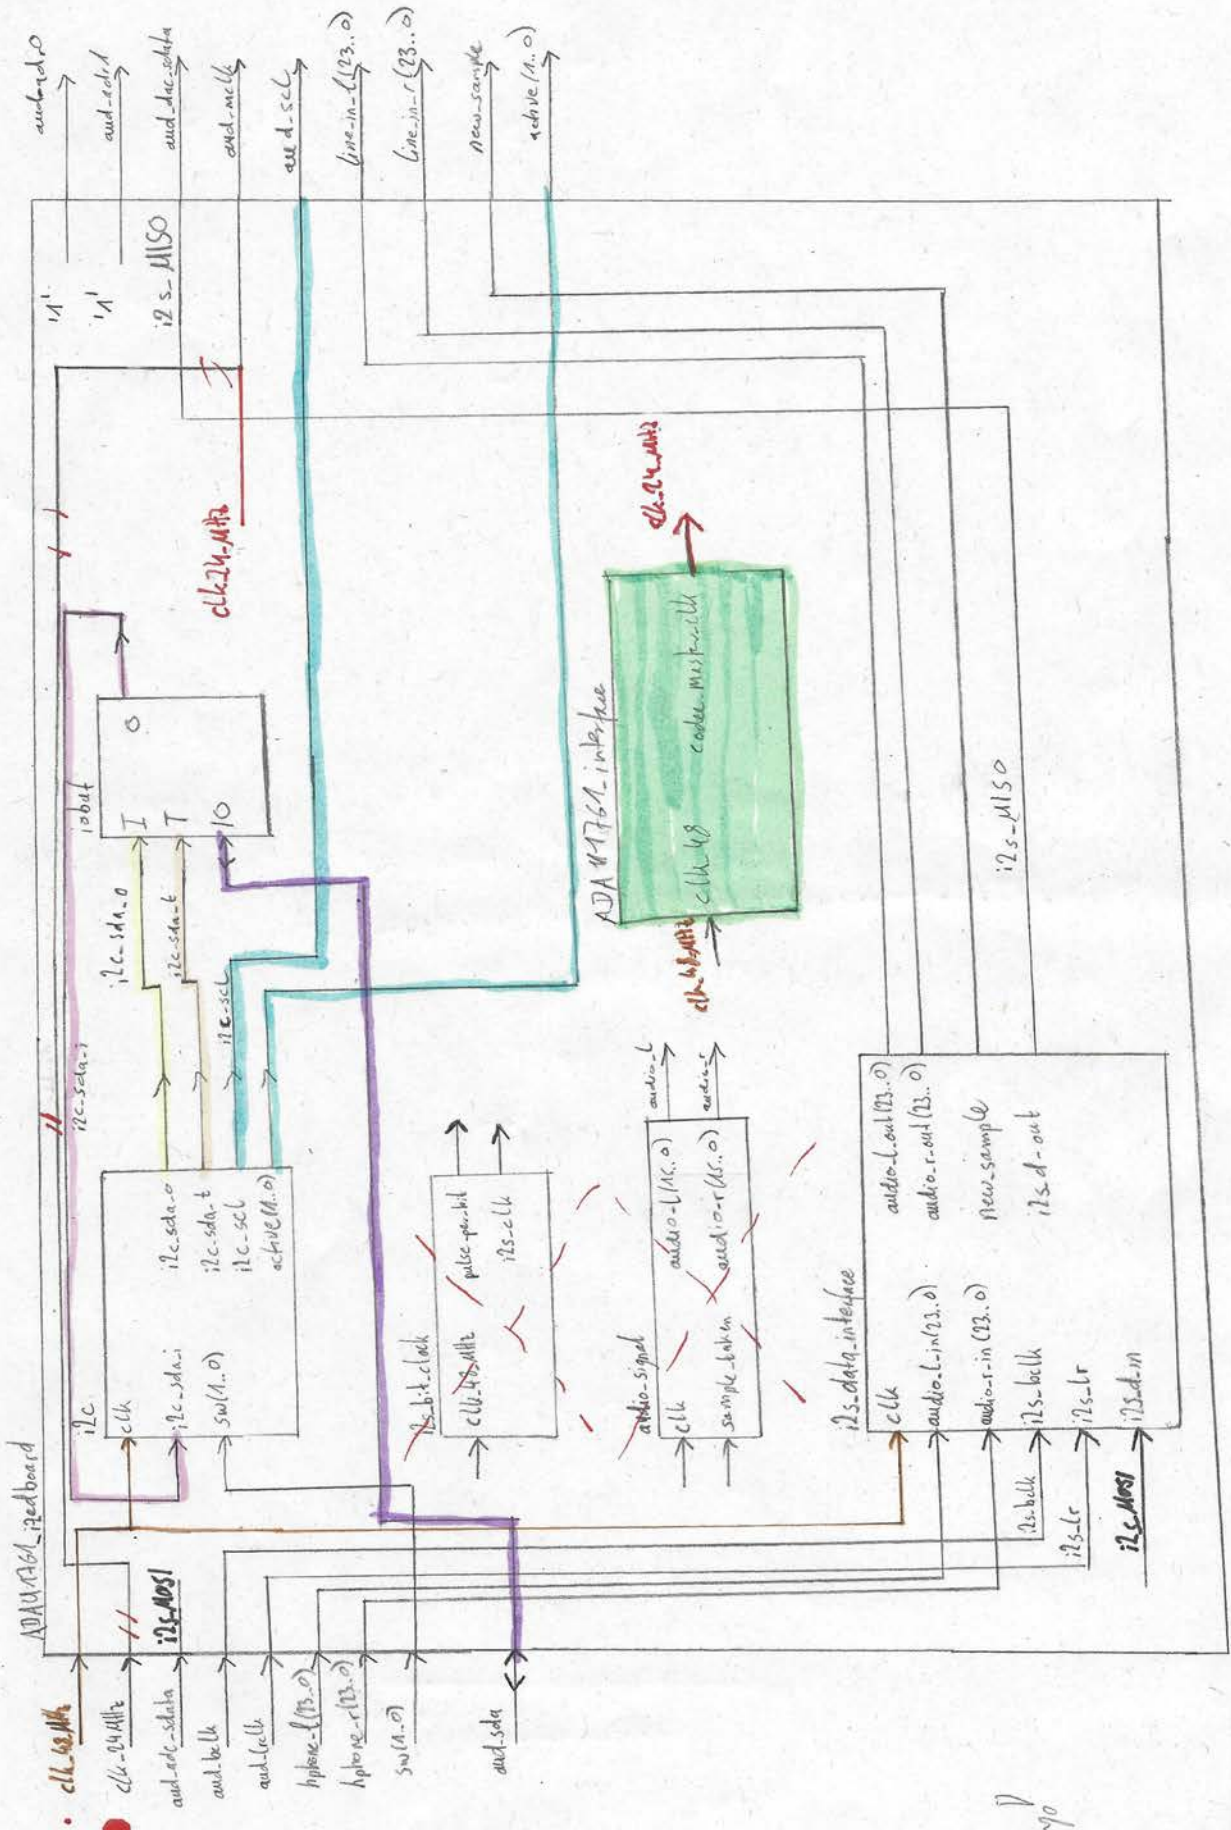 ADAU1761_izedboard
clk_48MHz
clk_24MHz
aud_adc_sdata
aud_bclk
aud_lrclk
hphone_l(23..0)
hphone_r(23..0)
sw(1..0)
aud_sda
i2s_MOSI
i2c
clk
i2c_sda_i
sw(1..0)
i2c_sda_o
i2c_sda_t
i2c_scl
active(1..0)
i2c_sda_i
i2c_sda_o
i2c_sda_t
i2c_scl
iobuf
I
T
IO
O
clk_24_MHz
'1'
'1'
i2s_MISO
aud_adr0
aud_adr1
aud_dac_sdata
aud_mclk
aud_scl
line_in_l(23..0)
line_in_r(23..0)
new_sample
active(1..0)
i2s_bit_clock
clk_48_MHz
pulse_per_bit
i2s_clk
audio_signal
clk
sample_taken
audio_l(15..0)
audio_r(15..0)
audio_l
audio_r
ADAU1761_interface
clk_48_MHz
clk_48
codec_master_clk
clk_24_MHz
i2s_data_interface
clk
audio_l_in(23..0)
audio_r_in(23..0)
i2s_bclk
i2s_lr
i2s_d_in
i2s_bclk
i2s_lr
i2s_MOSI
audio_l_out(23..0)
audio_r_out(23..0)
new_sample
i2s_d_out
i2s_MISO